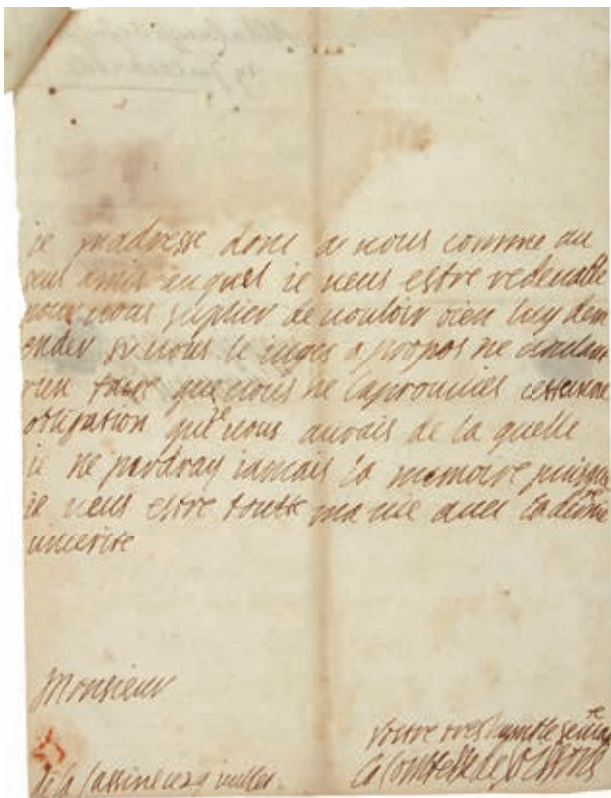 ie m'adresse donc a vous comme au
seul amis auquel ie veus estre redevable
pour vous suplier de vouloir bien luy dem
ander si vous le iuges a propos ne voulant
rien faire que vous ne l'aprouvies cest une
obligation que ie vous aurais de la quelle
ie ne perdray iamais la memoire puisque
ie veus estre toutte ma vie avec la derniere
Monsieur
vostre tres humble servante
La Comtesse de
de la Cassine ce 9 iuillet